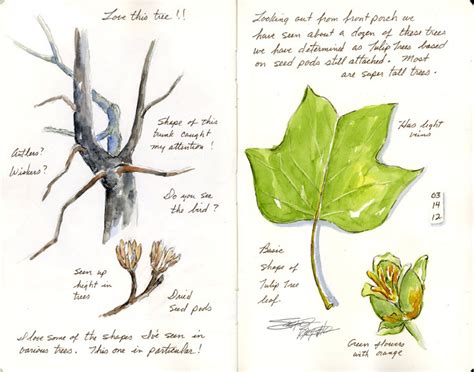 Love this tree !!
Shape of this
trunk caught
my attention!
Antlers?
Wiskers?
Do you see
the bird?
seen up
hight in
trees
Dried
Seed pods
I love some of the shapes I've seen in
various trees. This one in particular!
Looking out from front porch we
have seen about a dozen of these trees
we have determined as Tulip Trees based
on seed pods still attached. Most
are super tall trees.
Has light
veins
03
14
12
Basic
shape of
Tulip Tree
leaf.
Green flowers
with orange